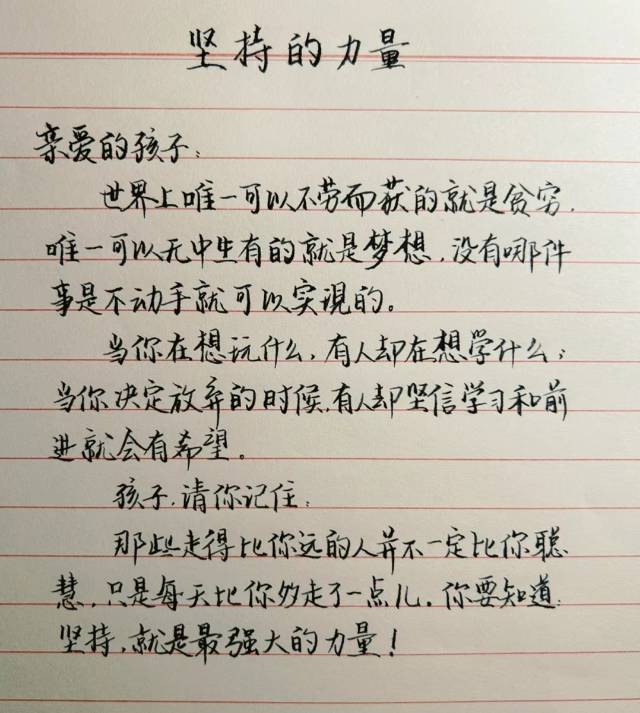 坚持的力量
亲爱的孩子：
世界上唯一可以不劳而获的就是贫穷，
唯一可以无中生有的就是梦想，没有哪件
事是不动手就可以实现的。
当你在想玩什么，有人却在想学什么；
当你决定放弃的时候，有人却坚信学习和前
进就会有希望。
孩子，请你记住：
那些走得比你远的人并不一定比你聪
慧，只是每天比你多走了一点儿。你要知道：
坚持，就是最强大的力量！